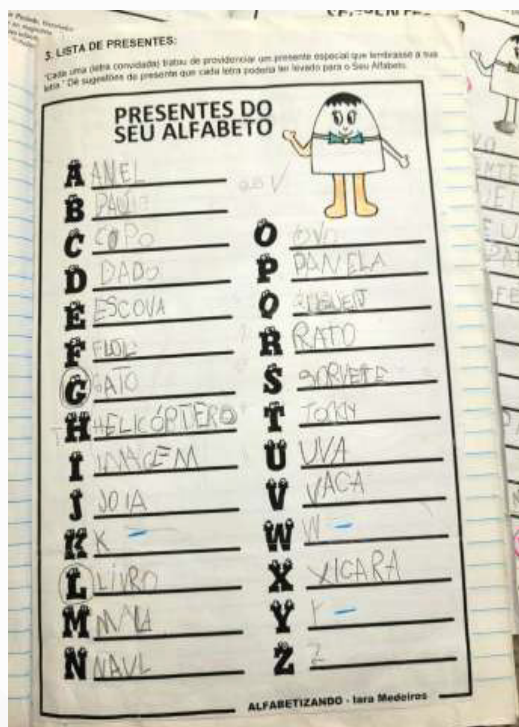 3. LISTA DE PRESENTES:
"Cada uma (letra convidada) tratou de providenciar um presente especial que lembrasse a sua
letra." Dê sugestões de presente que cada letra poderia ter levado para o Seu Alfabeto.
PRESENTES DO
SEU ALFABETO
A ANEL
B
C COPO
D DADO
E ESCOVA
F FLOR
G GATO
H HELICÓPTERO
I IMAGEM
J JOIA
K K -
L LIVRO
M MALA
N NAVL
O OVO
P PANELA
Q
R RATO
S SORVETE
T
U UVA
V VACA
W W -
X XICARA
Y Y -
Z Z
ALFABETIZANDO - Iara Medeiros